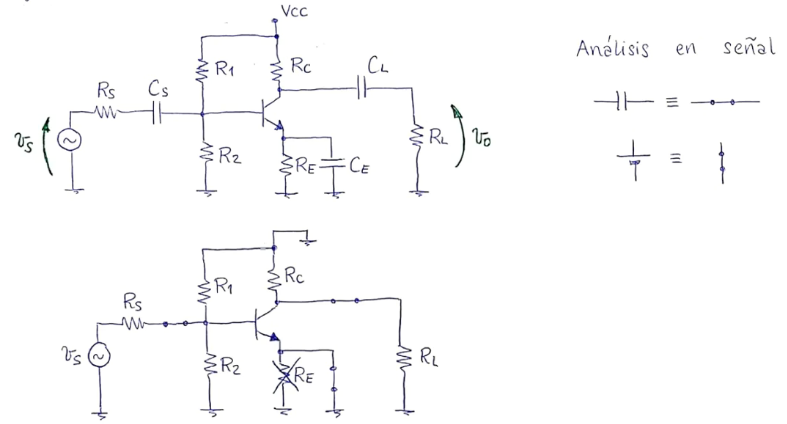 Vcc
R1
Rc
CL
Rs
Cs
vs
R2
RE
CE
RL
vo
Análisis en señal
≡
≡
R1
Rc
Rs
vs
R2
RE
RL